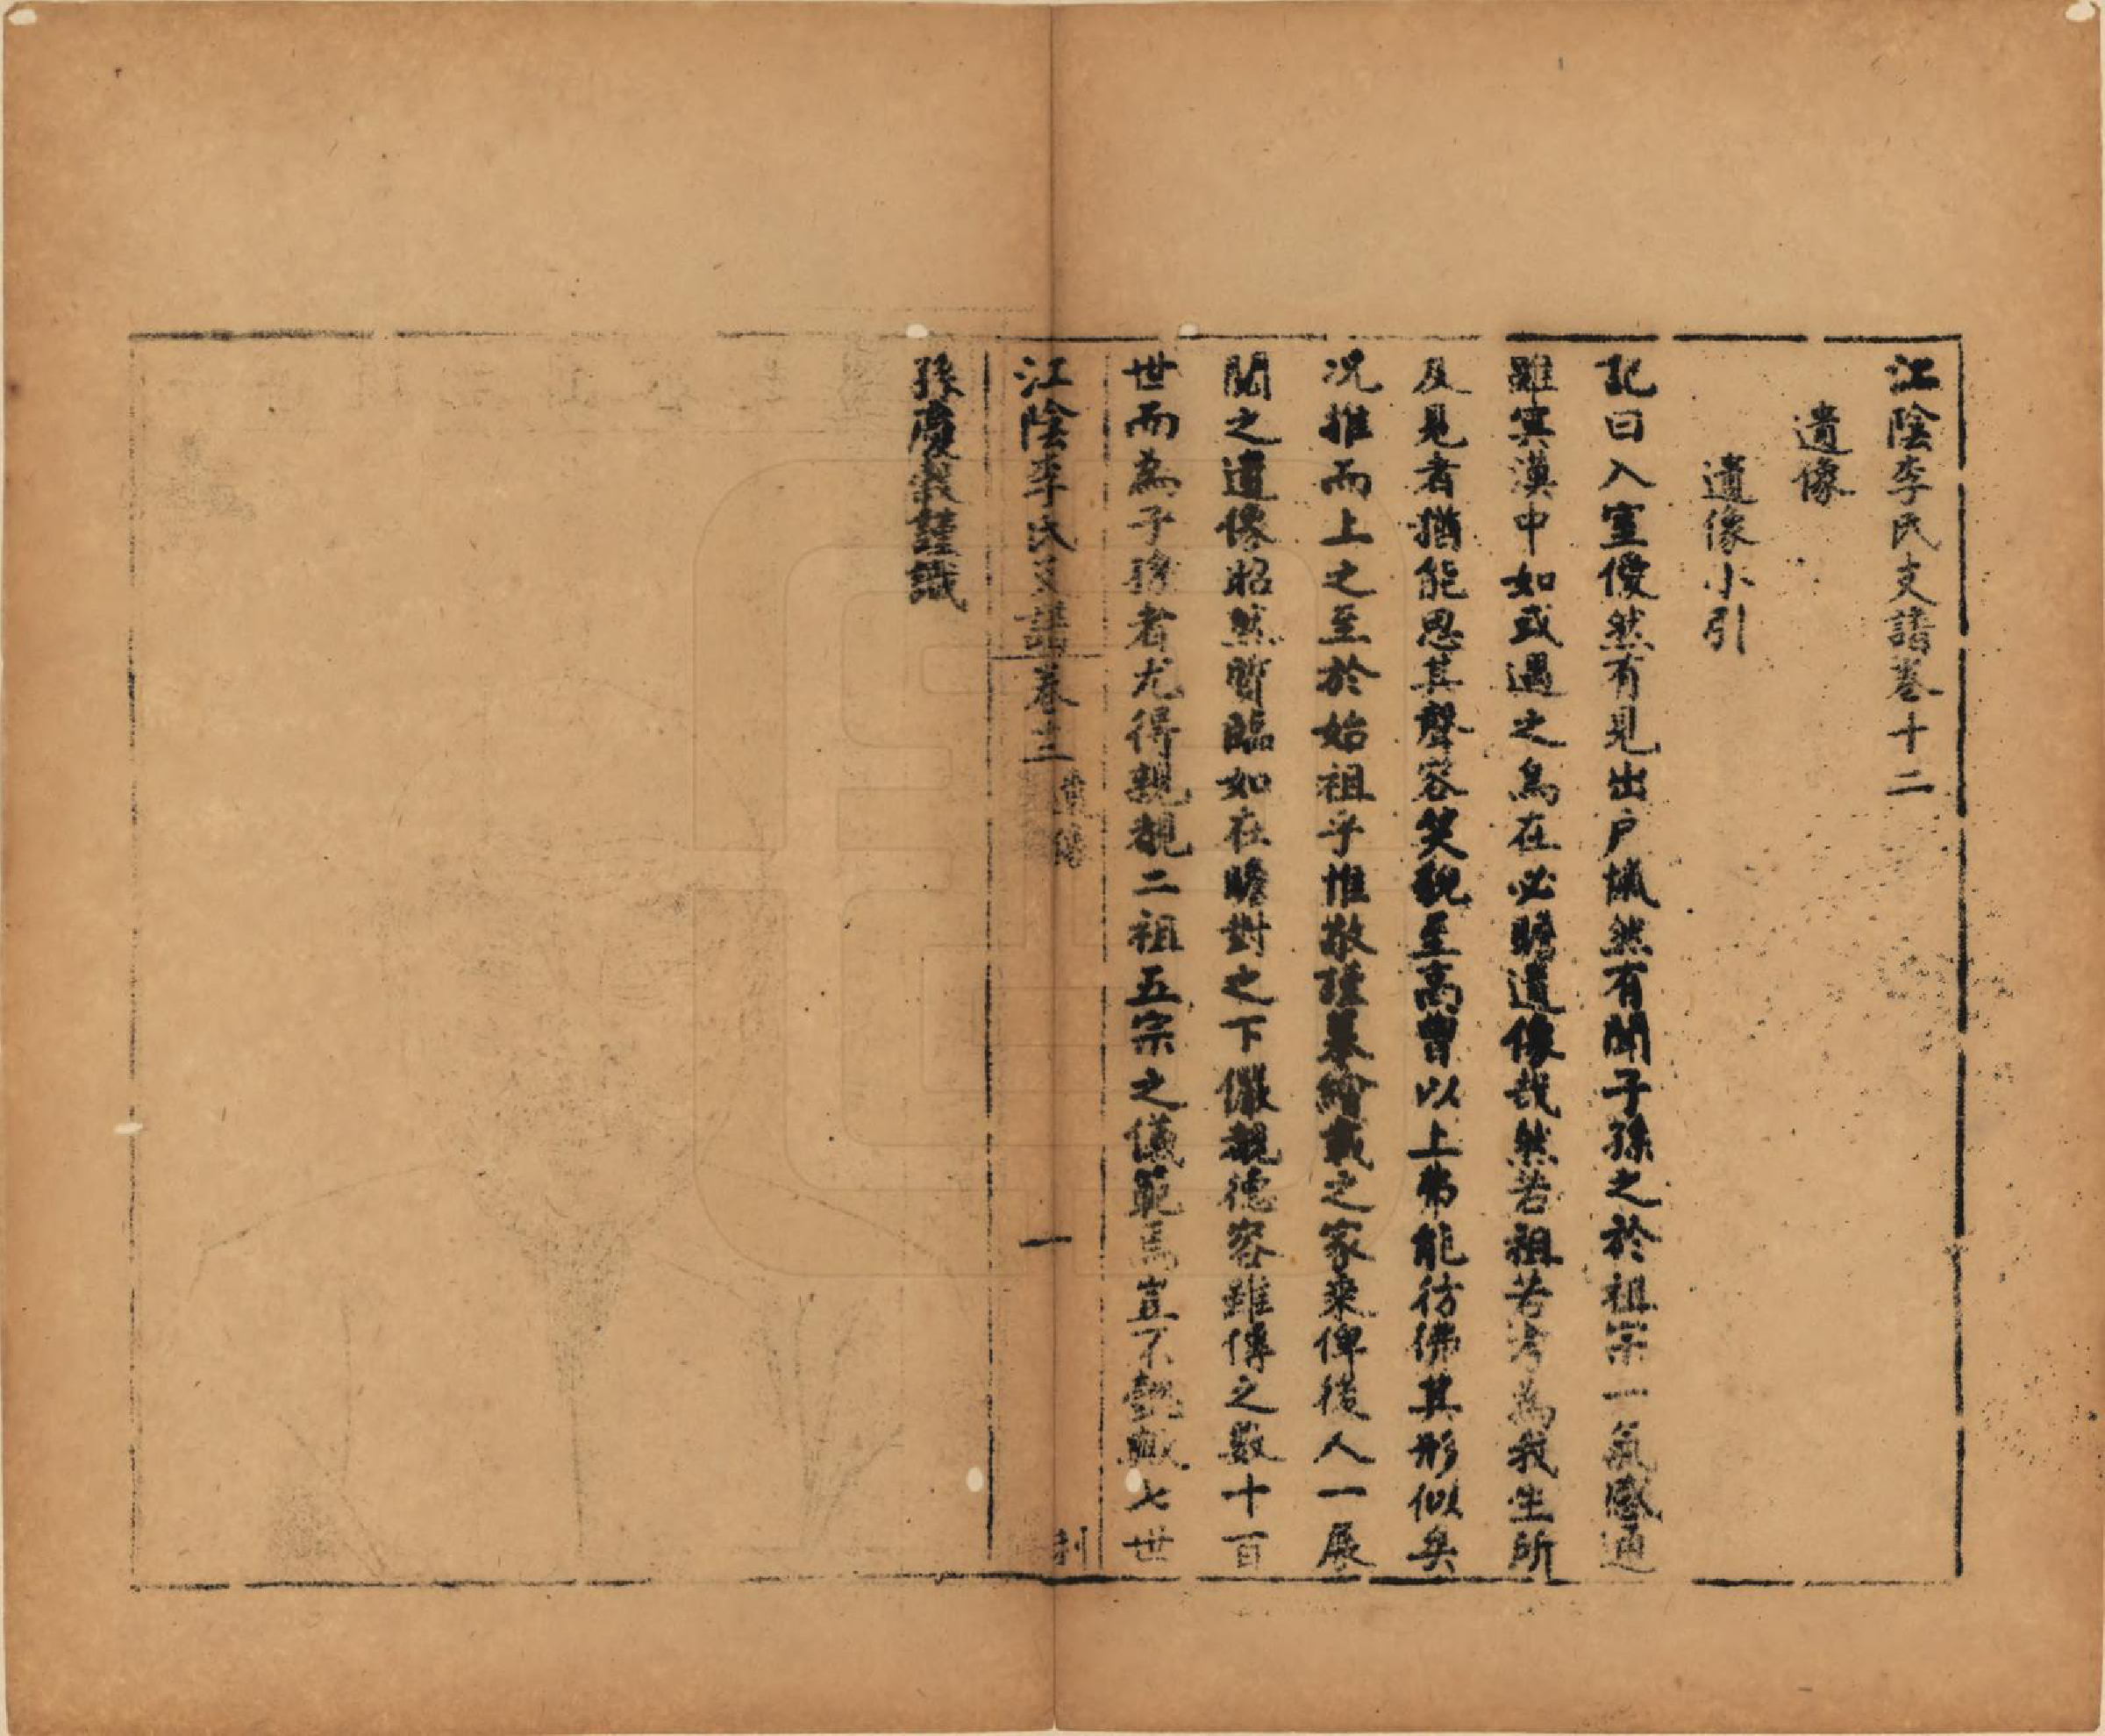 江陰李氏支譜卷十二
遺像
遺像小引
記曰入室僾然有見出戶愾然有聞子孫之於祖宗一氣感通
雖冥漠中如或遇之烏在必瞻遺像哉然若祖若考為我生所
及見者猶能思其聲容笑貌至高曾以上弗能彷彿其形似矣
况推而上之至於始祖乎惟敬謹摹繪載之家乘俾後人一展
閱之遺像昭然質臨如在瞻對之下儼覩德容雖傳之數十百
世而為子孫者尤得親覩二祖五宗之儀範焉豈不懿歟七世
江陰李氏支譜卷十二
遺像
一
孫慶 謹識